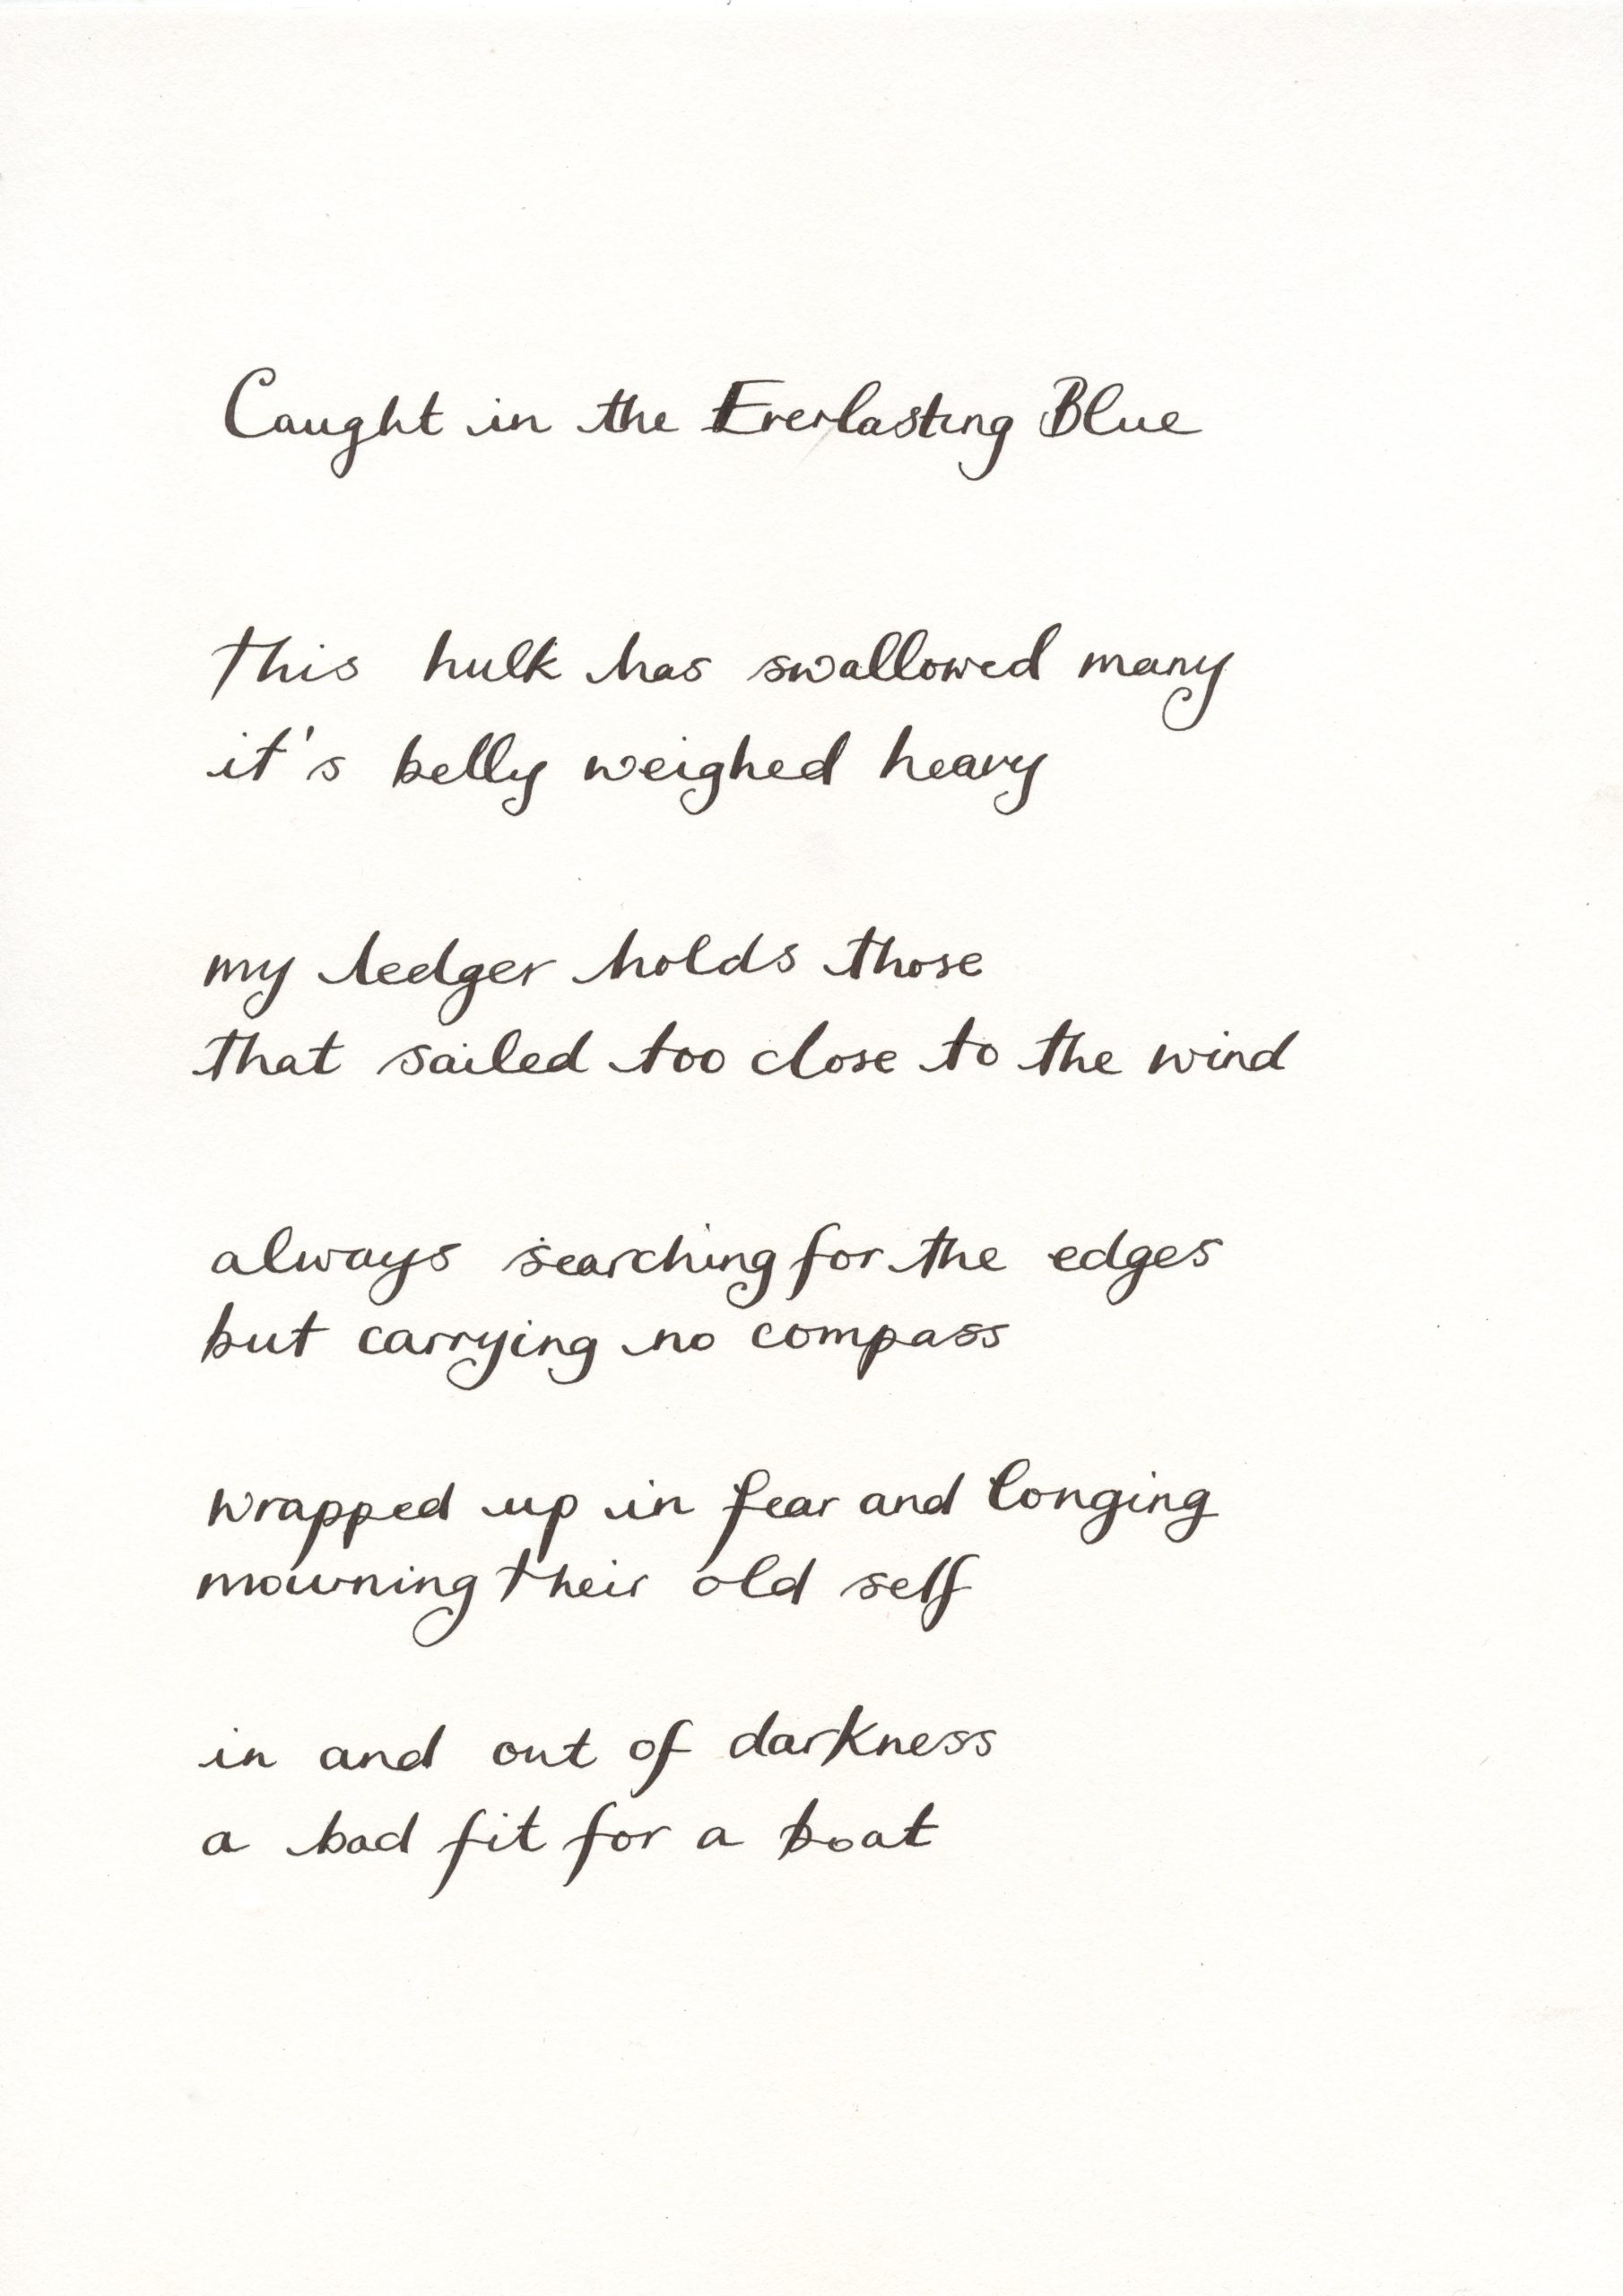 Caught in the Everlasting Blue
this hulk has swallowed many
it's belly weighed heavy
my ledger holds those
that sailed too close to the wind
always searching for the edges
but carrying no compass
wrapped up in fear and longing
mourning their old self
in and out of darkness
a bad fit for a boat